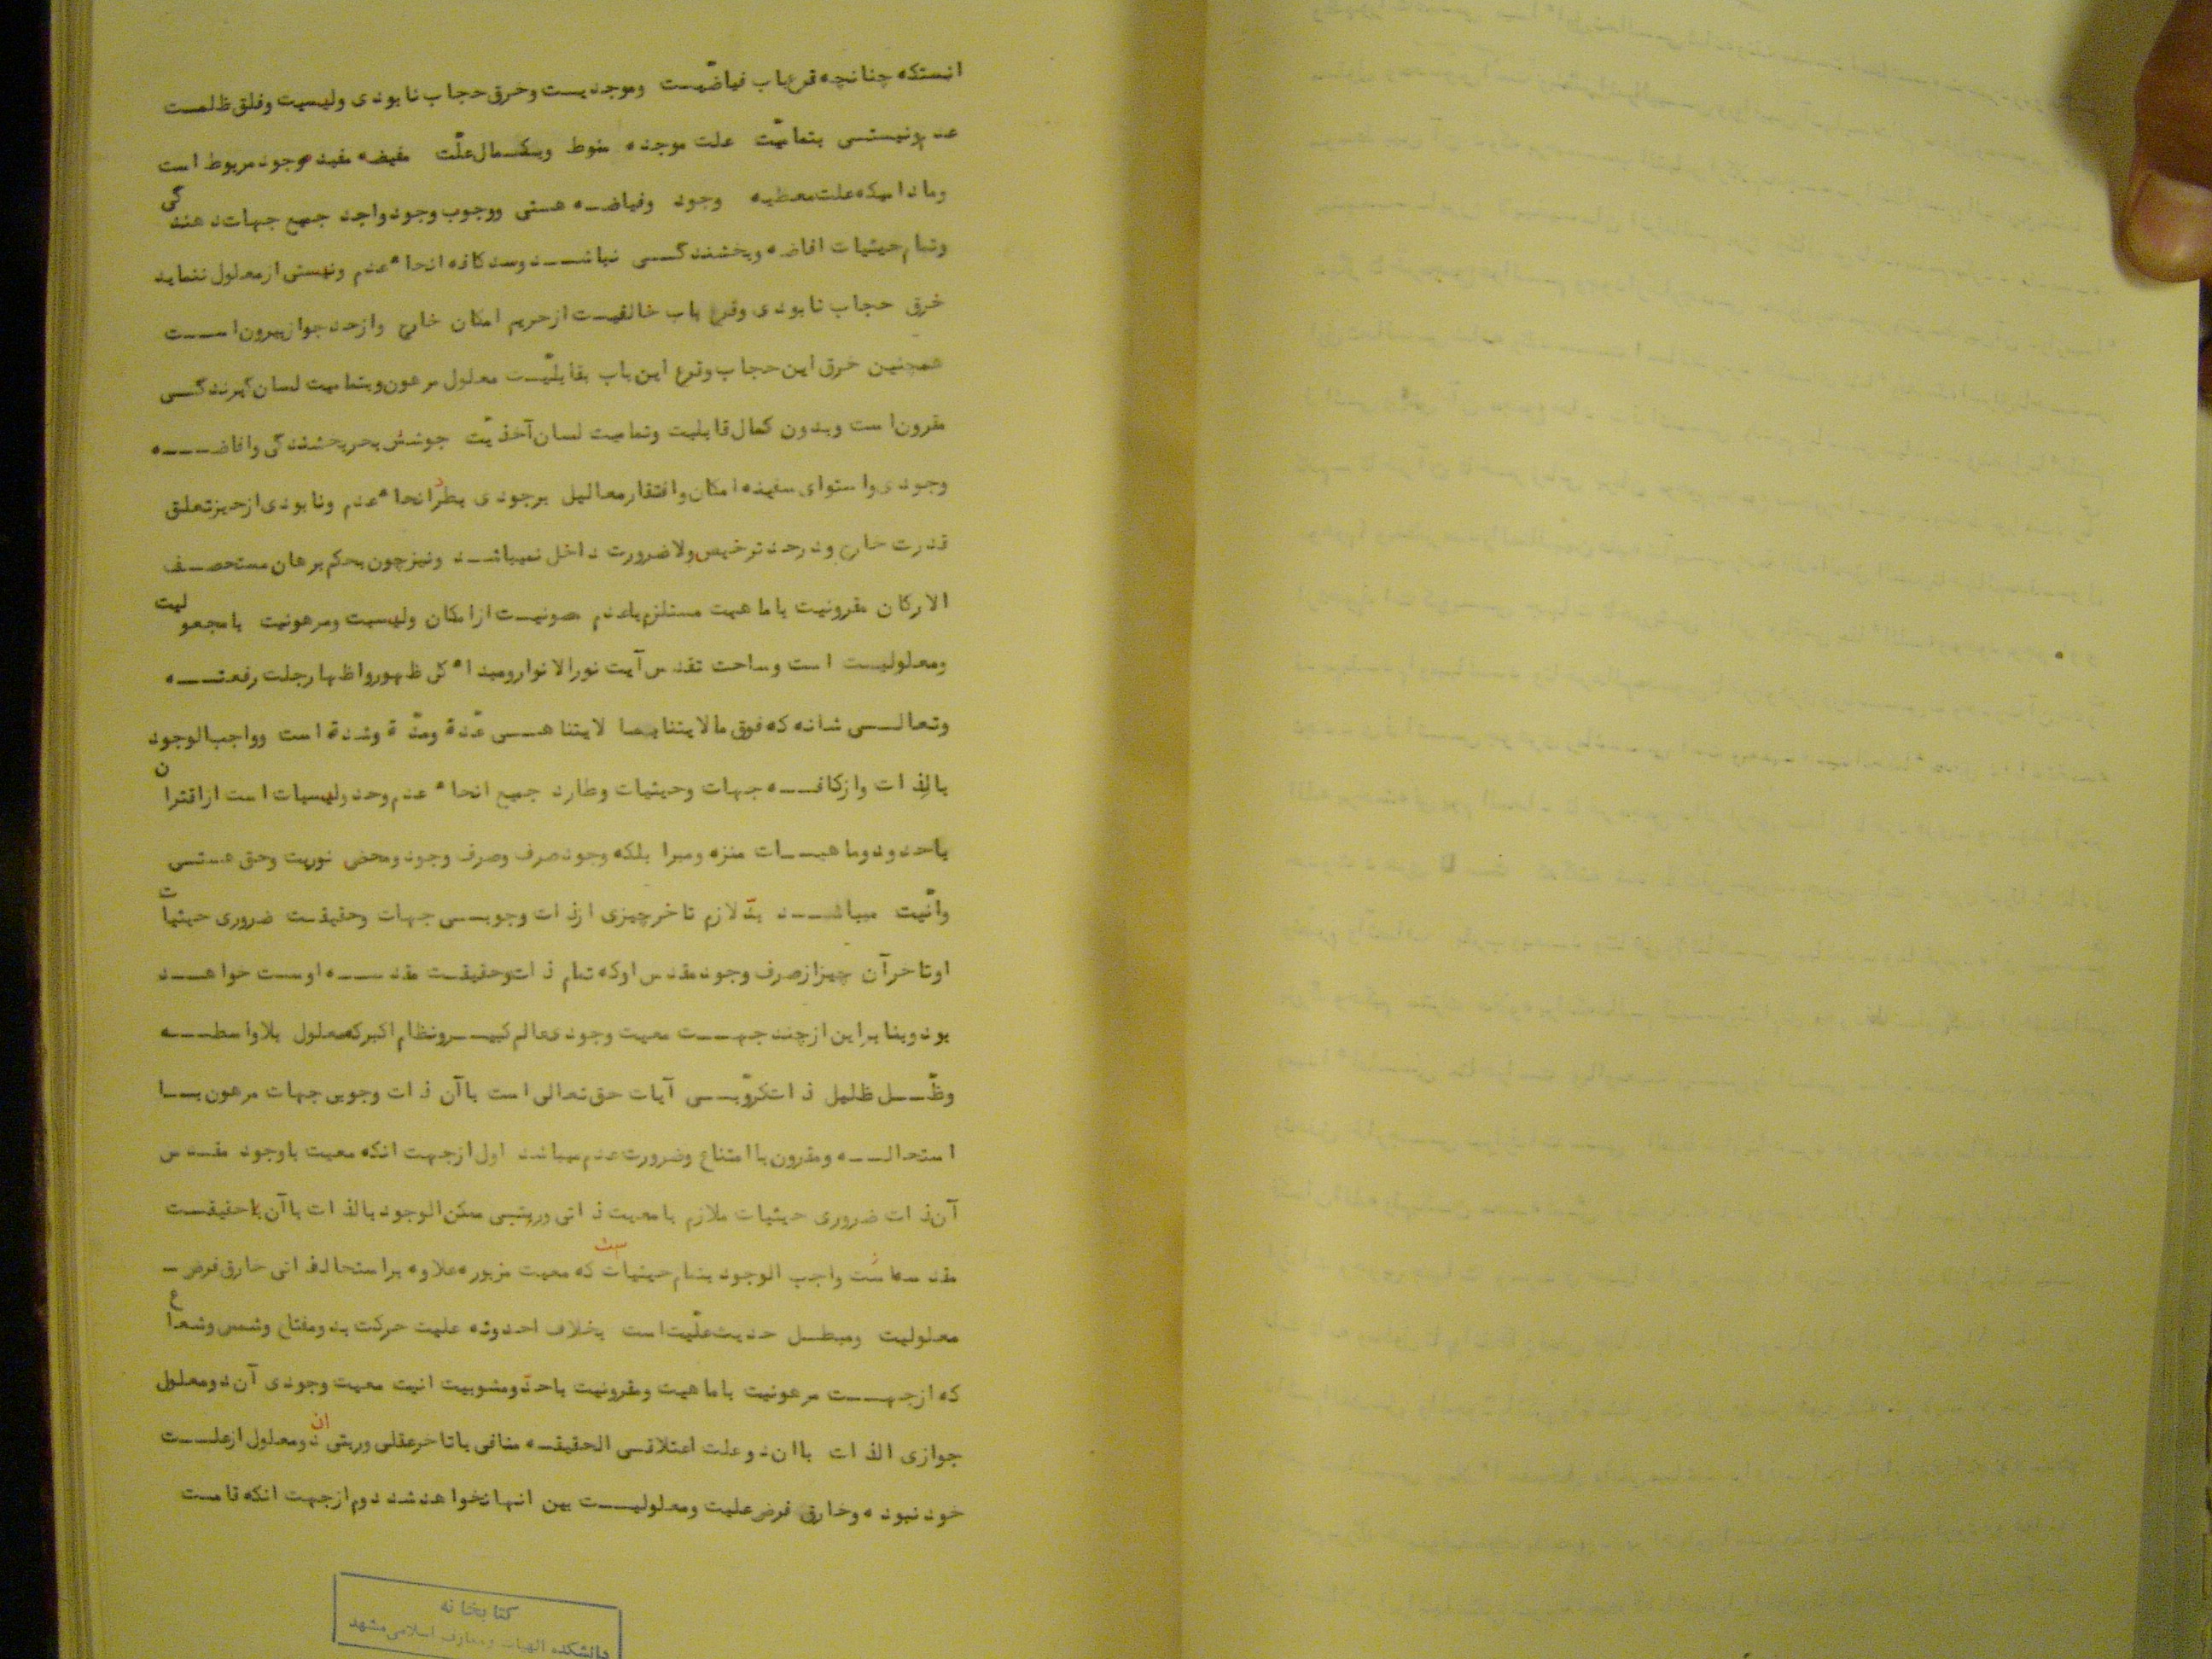 انستکه چنانچه قرع باب فیاضیّت وموجدیست وخرق حجاب نابودی ولیسیت وفلق ظلمت
عدم ونیستی بتمامیّت علت موجده منوط وبکمال علّت مفیضه مفید وجود مربوط است
ومادامیکه علت معطیه وجود وفیاضه هستی ووجوب وجود واجد جمیع جهات دهندگی
وتمام حیثیات افاضه وبخشندگی نباشد وسد کافه انحاء عدم ونیستی از معلول ننماید
خرق حجاب نابودی وقرع باب خالقیت از حریم امکان خارج وازحد جواز بیرون است
همچنین خرق این حجاب وقرع این باب بقابلیّت معلول مرهون وبتمامیت لسان گیرندگی
مقرون است وبدون کمال قابلیت وتمامیت لسان آخذیّت جوشش بحر بخشندگی وافاضه
وجودی واستوای سفینه امکان وافتقار معالیل برجودی بطرد انحاء عدم ونابودی ازحیز تعلق
قدرت خارج ودرحد ترخیص ولاضرورت داخل نمیباشد ونیز چون بحکم برهان مستحصف
الارکان مقرونیت با ماهیت مستلزم با عدم مصونیت از امکان ولیسیت ومرهونیت با مجعولیت
ومعلولیت است وساحت تقدس آیت نورالانوار ومبداء کل ظهور واظهار جلت رفعته
وتعالی شانه که فوق مالایتناهی بما لایتناهی عّدة ومدّة وشدة است وواجب الوجود
بالذات وازکافه جهات وحیثیات وطارد جمیع انحاء عدم وحد ولیسیات است از اقتران
باحدود وماهیات منزه ومبرا بلکه وجود صرف وصرف وجود ومحض نوریت وحق هستی
وانّیت میباشد بدّ لازم تاخر چیزی از ذات وجوبی جهات وحقیقت ضروری حیثیات
او تاخر آن چیز از صرف وجود مقدس او که تمام ذات وحقیقت مقدسه اوست خواهد
بود وبنابراین از چند جهت معیت وجودی عالم کبیر ونظام اکبر که معلول بلاواسطه
وظّل ظلیل ذات کروّبی آیات حق تعالی است با آن ذات وجوبی جهات مرهون با
استحاله ومقرون با امتناع وضرورت عدم میباشد اول از جهت انکه معیت با وجود مقدس
آن ذات ضروری حیثیات ملازم بامعیت ذاتی ورتبتی ممکن الوجود بالذات با آن با حقیقت
واجب الوجود بتمام حیثیات است که معیت مزبوره علاوه بر استحاله ذاتی خارق فرض
معلولیت ومبطل حدیث علّیت است بخلاف احدوثه علیت حرکت ید ومفتاح وشمس وشعاع
که از جهت مرهونیت با ماهیت ومقرونیت باحدّ ومشوبیت انیت معیت وجودی آن دو معلول
جوازی الذات با ان دو علت اعتلاقی الحقیقه منافی با تاخر عقلی ورتبی ان دو معلول از علت
خود نبوده وخارق فرض علیت ومعلولیت بین انها نخواهد شد دوم از جهت انکه تامیت
کتابخانه
دانشکده الهیات ومعارف اسلامی مشهد